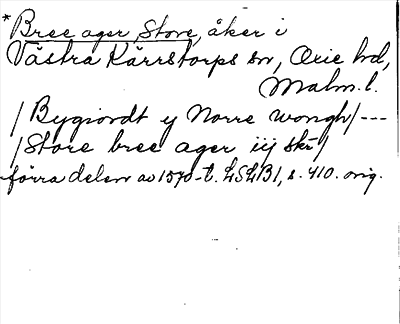 * Bree ager, Store, åker i
Västra Kärrstorps sn, Oxie hd,
Malm. l.
/Bygiordt y Norre wongh/ ---
/Store bree ager iij skr/
förra delen av 1570-t. LSLB1, s. 410. orig.